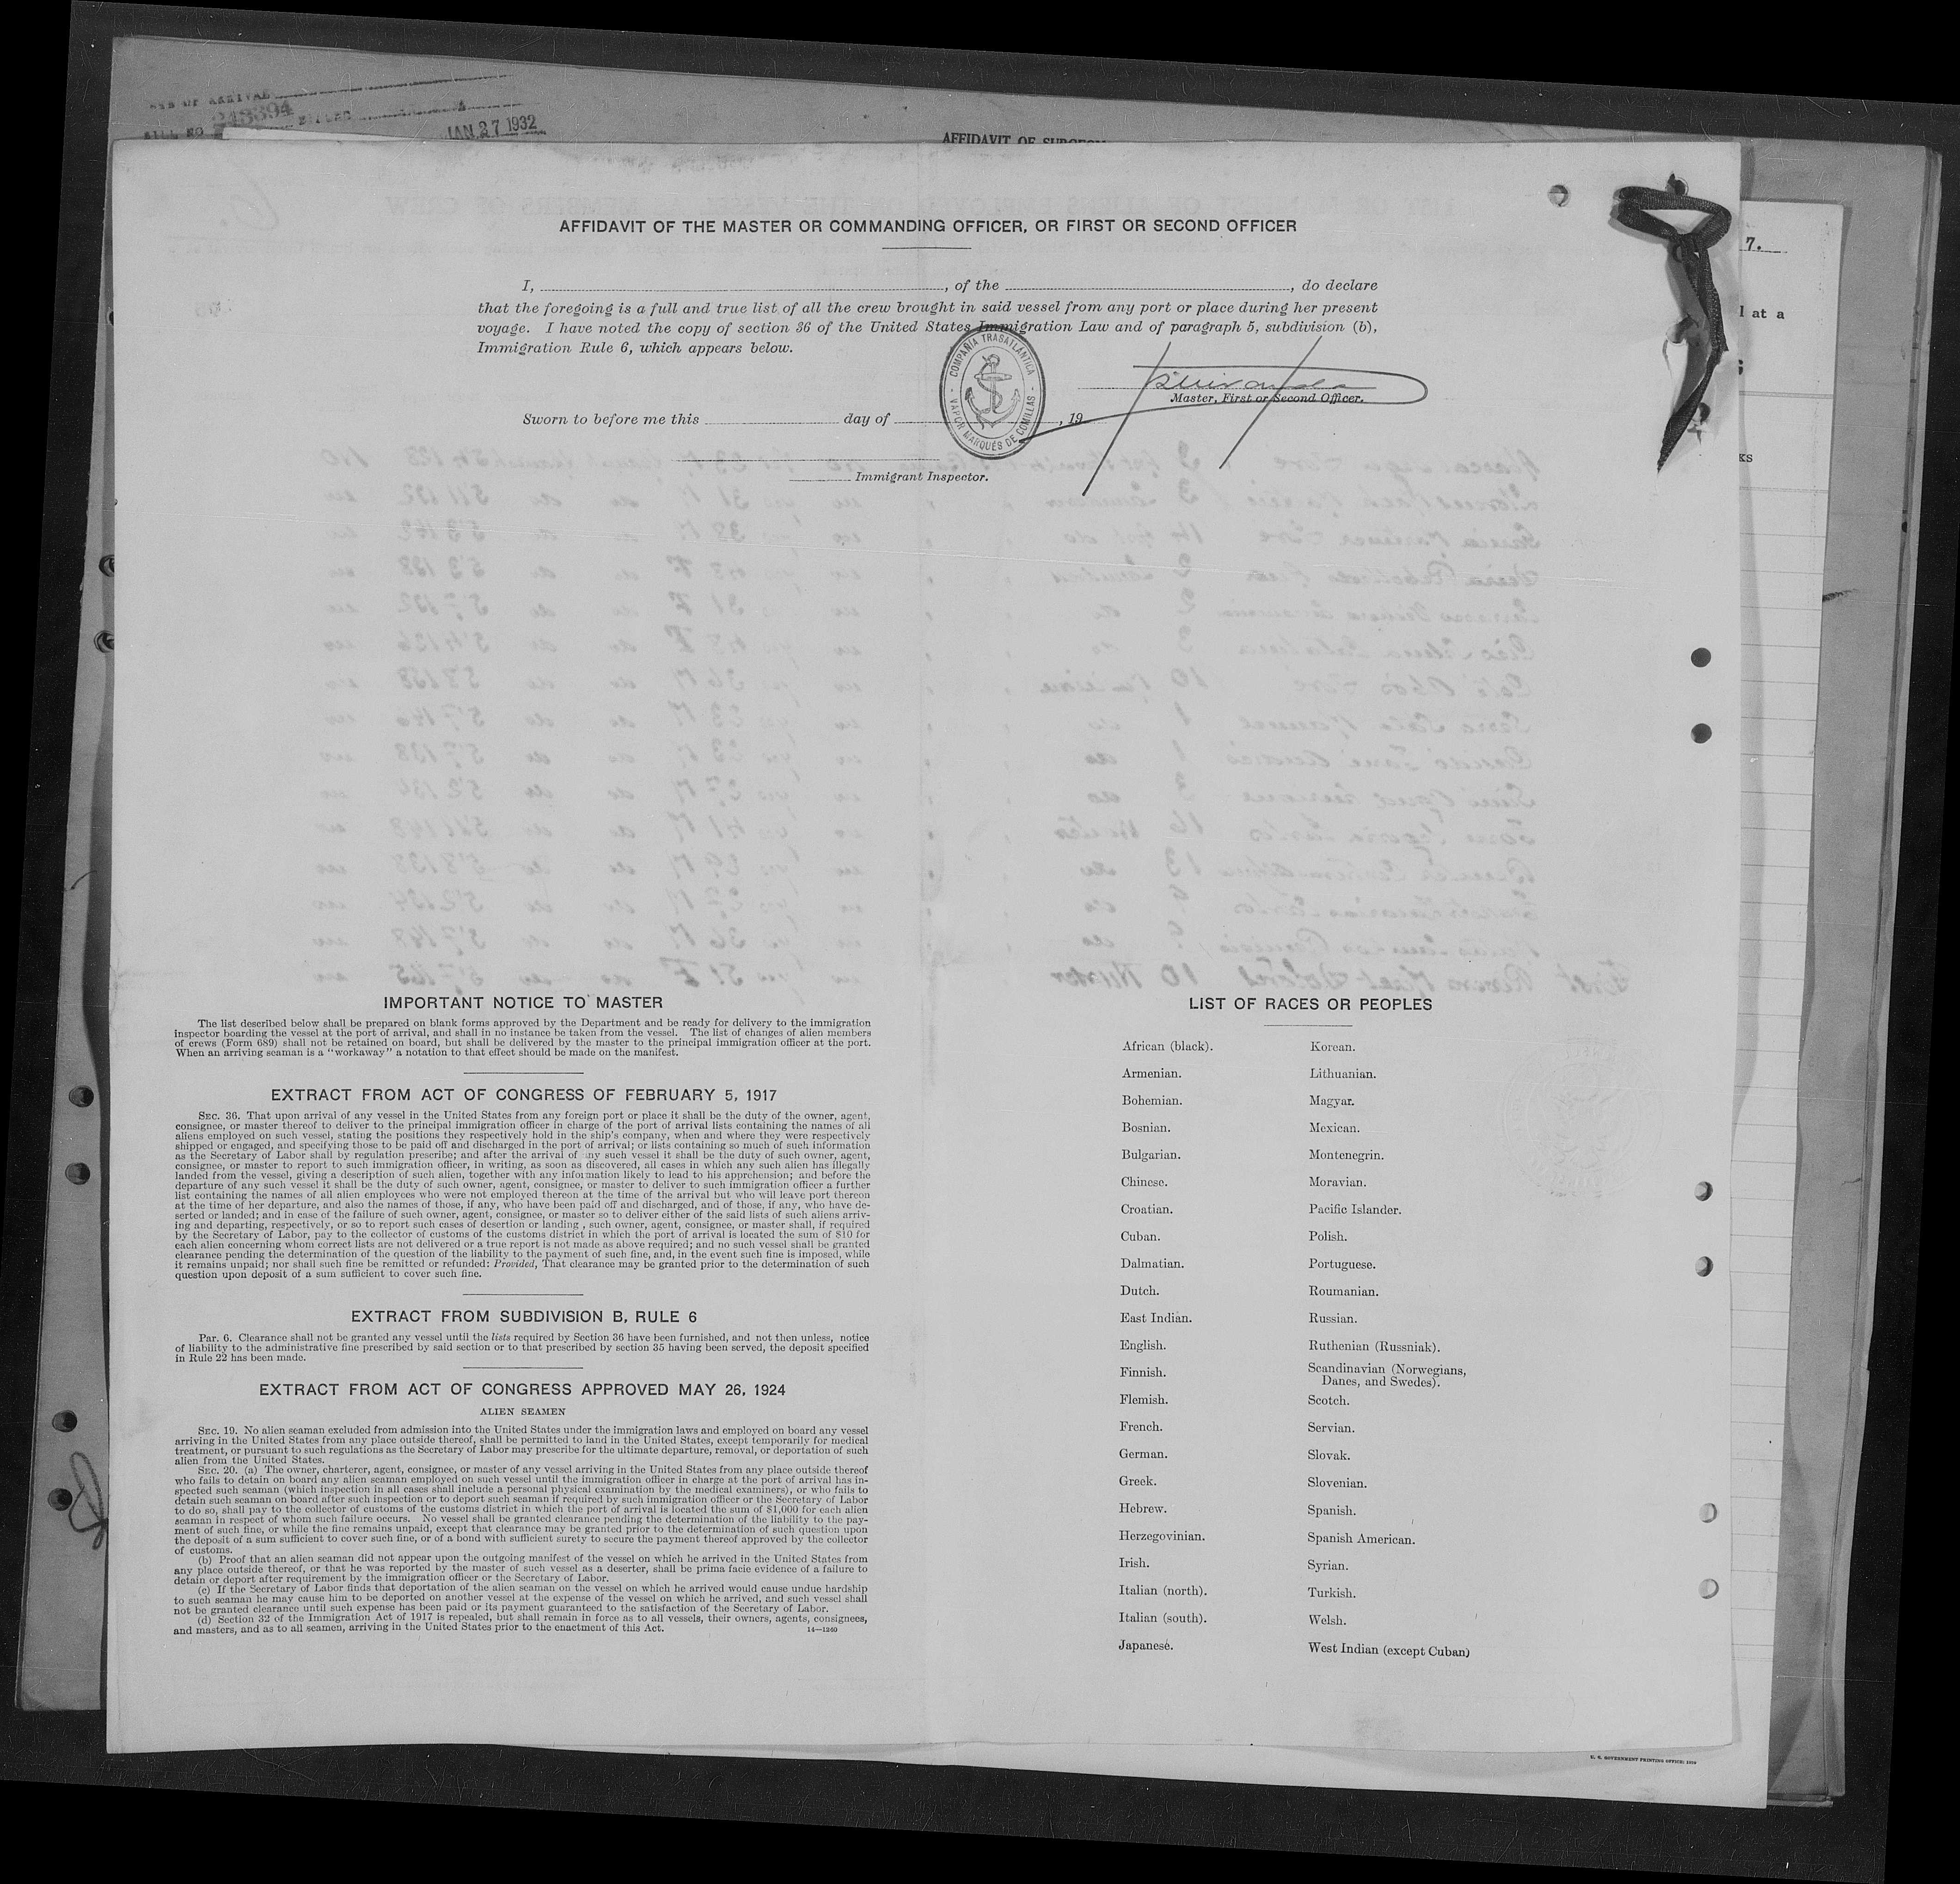 BILL NO 243394
JAN 27 1932
AFFIDAVIT OF SURGEON
7.
l at a
KS
AFFIDAVIT OF THE MASTER OR COMMANDING OFFICER, OR FIRST OR SECOND OFFICER
I, , of the , do declare
that the foregoing is a full and true list of all the crew brought in said vessel from any port or place during her present
voyage. I have noted the copy of section 36 of the United States Immigration Law and of paragraph 5, subdivision (b),
Immigration Rule 6, which appears below.
COMPAÑIA TRASATLANTICA
VAPOR MARQUÉS DE COMILLAS
Master, First or Second Officer.
Sworn to before me this day of , 19
Immigrant Inspector.
IMPORTANT NOTICE TO MASTER
The list described below shall be prepared on blank forms approved by the Department and be ready for delivery to the immigration
inspector boarding the vessel at the port of arrival, and shall in no instance be taken from the vessel. The list of changes of alien members
of crews (Form 689) shall not be retained on board, but shall be delivered by the master to the principal immigration officer at the port.
When an arriving seaman is a "workaway" a notation to that effect should be made on the manifest.
EXTRACT FROM ACT OF CONGRESS OF FEBRUARY 5, 1917
SEC. 36. That upon arrival of any vessel in the United States from any foreign port or place it shall be the duty of the owner, agent,
consignee, or master thereof to deliver to the principal immigration officer in charge of the port of arrival lists containing the names of all
aliens employed on such vessel, stating the positions they respectively hold in the ship's company, when and where they were respectively
shipped or engaged, and specifying those to be paid off and discharged in the port of arrival; or lists containing so much of such information
as the Secretary of Labor shall by regulation prescribe; and after the arrival of any such vessel it shall be the duty of such owner, agent,
consignee, or master to report to such immigration officer, in writing, as soon as discovered, all cases in which any such alien has illegally
landed from the vessel, giving a description of such alien, together with any information likely to lead to his apprehension; and before the
departure of any such vessel it shall be the duty of such owner, agent, consignee, or master to deliver to such immigration officer a further
list containing the names of all alien employees who were not employed thereon at the time of the arrival but who will leave port thereon
at the time of her departure, and also the names of those, if any, who have been paid off and discharged, and of those, if any, who have de-
serted or landed; and in case of the failure of such owner, agent, consignee, or master so to deliver either of the said lists of such aliens arriv-
ing and departing, respectively, or so to report such cases of desertion or landing , such owner, agent, consignee, or master shall, if required
by the Secretary of Labor, pay to the collector of customs of the customs district in which the port of arrival is located the sum of $10 for
each alien concerning whom correct lists are not delivered or a true report is not made as above required; and no such vessel shall be granted
clearance pending the determination of the question of the liability to the payment of such fine, and, in the event such fine is imposed, while
it remains unpaid; nor shall such fine be remitted or refunded: Provided, That clearance may be granted prior to the determination of such
question upon deposit of a sum sufficient to cover such fine.
EXTRACT FROM SUBDIVISION B, RULE 6
Par. 6. Clearance shall not be granted any vessel until the lists required by Section 36 have been furnished, and not then unless, notice
of liability to the administrative fine prescribed by said section or to that prescribed by section 35 having been served, the deposit specified
in Rule 22 has been made.
EXTRACT FROM ACT OF CONGRESS APPROVED MAY 26, 1924
ALIEN SEAMEN
SEC. 19. No alien seaman excluded from admission into the United States under the immigration laws and employed on board any vessel
arriving in the United States from any place outside thereof, shall be permitted to land in the United States, except temporarily for medical
treatment, or pursuant to such regulations as the Secretary of Labor may prescribe for the ultimate departure, removal, or deportation of such
alien from the United States.
SEC. 20. (a) The owner, charterer, agent, consignee, or master of any vessel arriving in the United States from any place outside thereof
who fails to detain on board any alien seaman employed on such vessel until the immigration officer in charge at the port of arrival has in-
spected such seaman (which inspection in all cases shall include a personal physical examination by the medical examiners), or who fails to
detain such seaman on board after such inspection or to deport such seaman if required by such immigration officer or the Secretary of Labor
to do so, shall pay to the collector of customs of the customs district in which the port of arrival is located the sum of $1,000 for each alien
seaman in respect of whom such failure occurs. No vessel shall be granted clearance pending the determination of the liability to the pay-
ment of such fine, or while the fine remains unpaid, except that clearance may be granted prior to the determination of such question upon
the deposit of a sum sufficient to cover such fine, or of a bond with sufficient surety to secure the payment thereof approved by the collector
of customs.
(b) Proof that an alien seaman did not appear upon the outgoing manifest of the vessel on which he arrived in the United States from
any place outside thereof, or that he was reported by the master of such vessel as a deserter, shall be prima facie evidence of a failure to
detain or deport after requirement by the immigration officer or the Secretary of Labor.
(c) If the Secretary of Labor finds that deportation of the alien seaman on the vessel on which he arrived would cause undue hardship
to such seaman he may cause him to be deported on another vessel at the expense of the vessel on which he arrived, and such vessel shall
not be granted clearance until such expense has been paid or its payment guaranteed to the satisfaction of the Secretary of Labor.
(d) Section 32 of the Immigration Act of 1917 is repealed, but shall remain in force as to all vessels, their owners, agents, consignees,
and masters, and as to all seamen, arriving in the United States prior to the enactment of this Act. 14—1240
LIST OF RACES OR PEOPLES
African (black). Korean.
Armenian. Lithuanian.
Bohemian. Magyar.
Bosnian. Mexican.
Bulgarian. Montenegrin.
Chinese. Moravian.
Croatian. Pacific Islander.
Cuban. Polish.
Dalmatian. Portuguese.
Dutch. Roumanian.
East Indian. Russian.
English. Ruthenian (Russniak).
Finnish. Scandinavian (Norwegians,
Danes, and Swedes).
Flemish. Scotch.
French. Servian.
German. Slovak.
Greek. Slovenian.
Hebrew. Spanish.
Herzegovinian. Spanish American.
Irish. Syrian.
Italian (north). Turkish.
Italian (south). Welsh.
Japanese. West Indian (except Cuban)
U. S. GOVERNMENT PRINTING OFFICE: